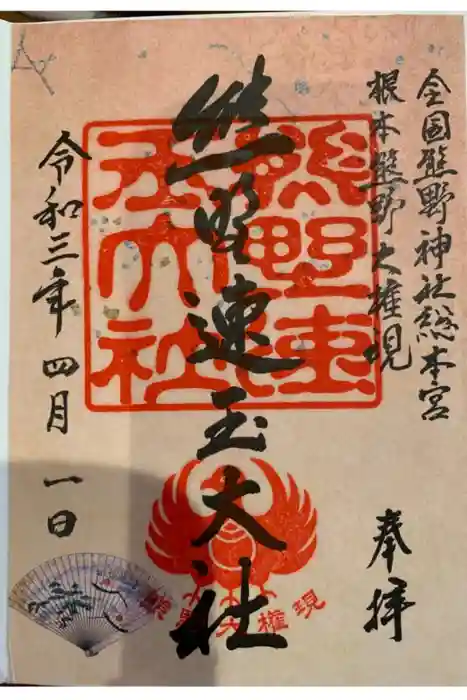 全国熊野神社総本宮
根本熊野大権現
奉拝
熊野速玉大社
熊野速
玉大社
根野大権現
令和三年四月一日